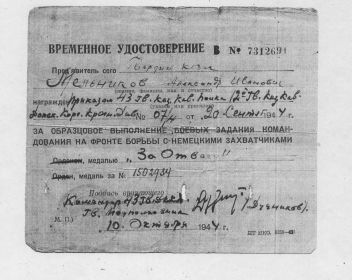 ВРЕМЕННОЕ УДОСТОВЕРЕНИЕ В № 7312691
Пред'явитель сего Гвардии
Мельников Александр Иванович
награжден Приказом 43 Гв. каз. кав. полка 12 Гв. каз. кав.
№ 07/н от 20 Сентяб. 1944 г.
ЗА ОБРАЗЦОВОЕ ВЫПОЛНЕНИЕ БОЕВЫХ ЗАДАНИЙ КОМАН-
ДОВАНИЯ НА ФРОНТЕ БОРЬБЫ С НЕМЕЦКИМИ ЗАХВАТЧИКАМИ
Орденом, медалью „За Отвагу"
Орден, медаль за № 1502934
Подпись вручающего
Командир 43
М. П. Гв. Подполковник
10 Октября 1944 г.